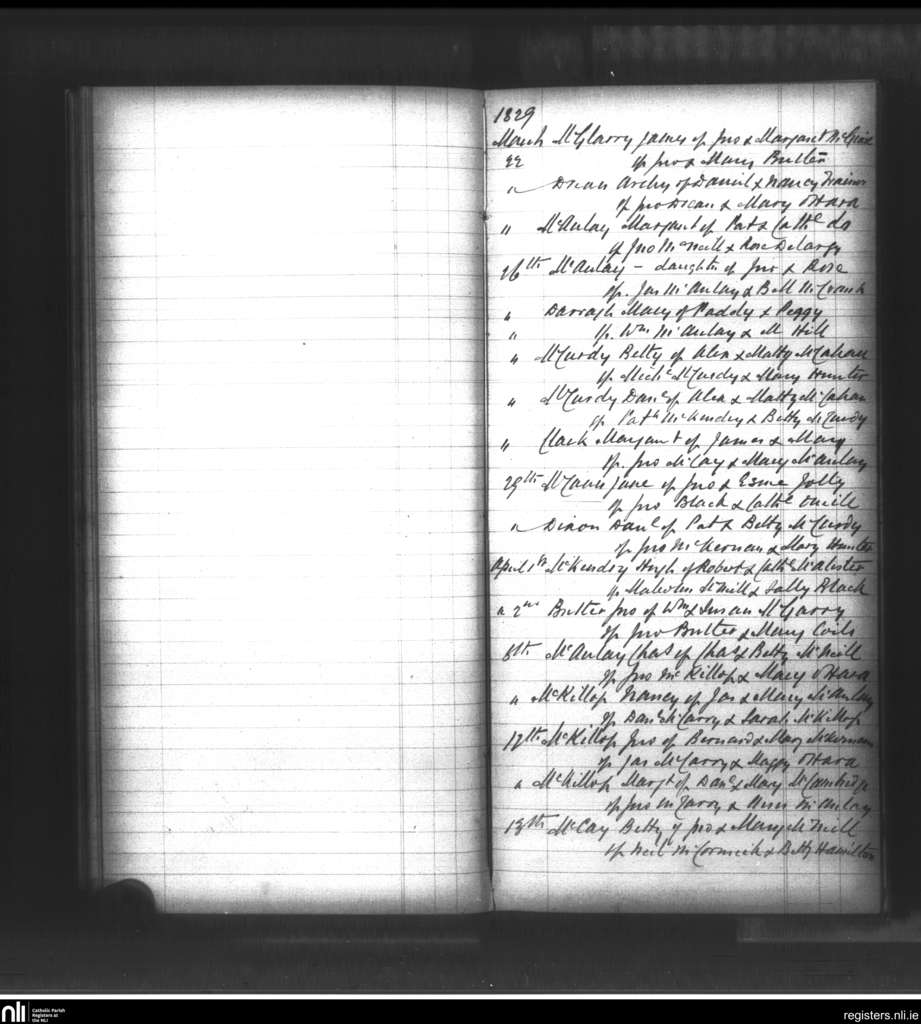 1829
March McGlarry James of Jno & Margaret
22 Sp Jno & Mary Butler
" Dican Archy of Daniel & Nancy Trainor
Sp Jno Dican & Mary OHara
" McAulay Margaret of Pat & Cathe do
Sp Jno McNeill & Rose Delargy
26th McAulay - daughter of Jno & Rose
Sp. Jas McAulay & Bell
" Darragh Mary of Paddy & Peggy
" Sp. Wm McAulay & M Hill
" McCurdy Betty of Alex & Matty McCahan
Sp Michl McCurdy & Mary Hunter
" McCurdy Danl of Alex & Matty McCahan
Sp Patk McKendry & Betty McCurdy
" Clack Margaret of James & Mary
Sp. Jno McCay & Mary McAulay
29th Jane of Jno & Esme Jolly
Sp Jno Black & Cathe ONeill
" Dixon Danl of Pat & Betty McCurdy
Sp Jno McKernan & Mary Hunter
April 1st McKendry Hugh of Robert & Cathe McAlister
Sp Malcolm McNeill & Sally Black
" 2nd Butler Jno of Wm & Susan McGarry
Sp Jno Butler & Mary Coils
8th McAulay Chas of Chas & Betty McNeill
Sp Jno McKillop & Mary OHara
" McKillop Nancy of Jas & Mary McAulay
Sp Danl McGarry & Sarah McKillop
17th McKillop Jno of Bernard & Mary McKernan
Sp Jas McGarry & Maggy OHara
" McKillop Margt of Danl & Mary McCambridge
Sp Jno McGarry & McAulay
18th McCay Betty of Jno & Mary McNeill
Sp Neil McCormick & Betty Hamilton
nli
Catholic Parish
Registers at
the NLI
registers.nli.ie